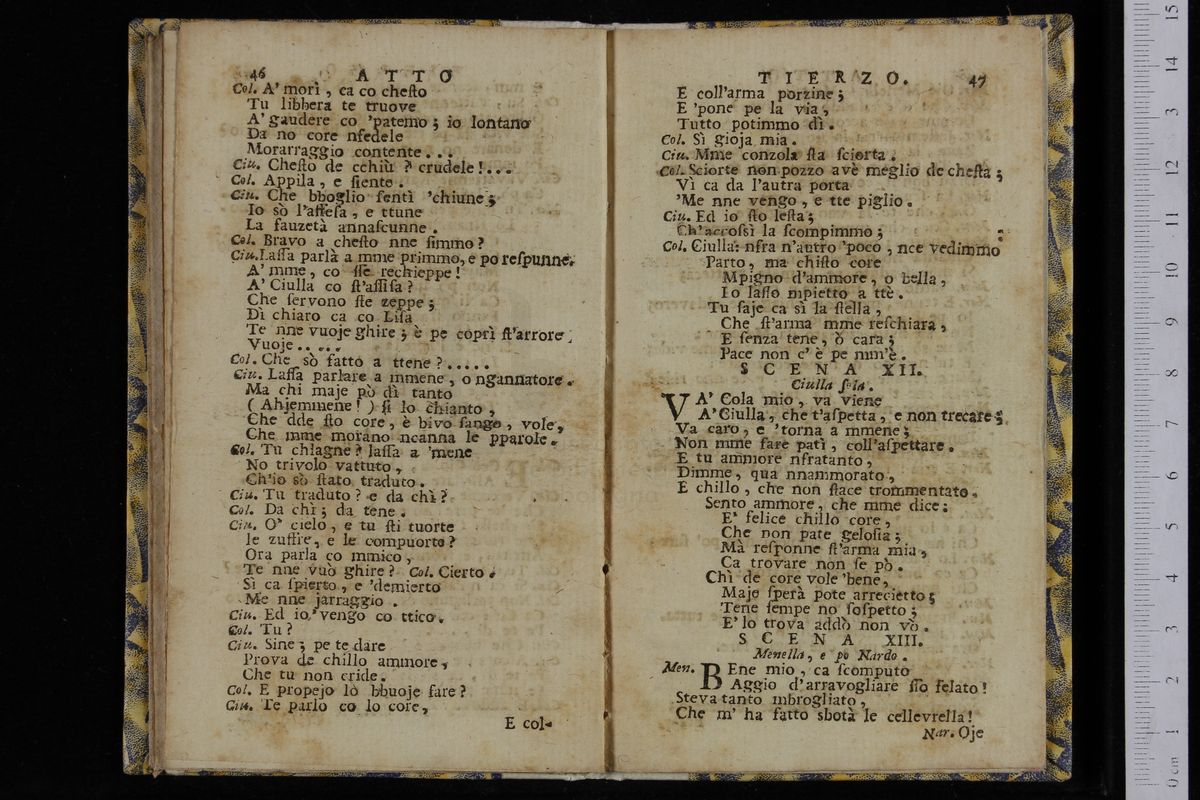 46 ATTO
Col. A' morì, ca co chesto
Tu libbera te truove
A' gaudere co 'patemo; io lontano
Da no core nfedele
Morarraggio contente...
Ciu. Chesto de cchiù? crudele!...
Col. Appila, e siente.
Ciu. Che bboglio sentì 'chiune;
Io sò l'affesa, e ttune
La fauzetà annascunne.
Col. Bravo a chesto nne simmo?
Ciu. Lassa parlà a mme primmo, e po respunne.
A' mme, co sse rechieppe!
A' Ciulla co st'assisa?
Che servono ste zeppe;
Dì chiaro ca co Lisa
Te nne vuoje ghire; è pe coprì st'arrore
Vuoje.....
Col. Che sò fatto a ttene?.....
Ciu. Lassa parlare a mmene, o ngannatore.
Ma chi maje pò dì tanto
(Ahjemmene!) si lo chianto,
Che dde sto core, è bivo sango, vole,
Che mme morano ncanna le pparole.
Col. Tu chiagne? lassa a 'mene
No trivolo vattuto,
Ch'io sò stato traduto.
Ciu. Tu traduto? e da chì?
Col. Da chi; da tene.
Ciu. O' cielo, e tu sti tuorte
le zuffre, e le compuorte?
Ora parla co mmico,
Te nne vuò ghire? Col. Cierto.
Sì ca spierto, e 'demierto
Me nne jarraggio.
Ciu. Ed io, vengo co ttico.
Col. Tu?
Ciu. Sine; pe te dare
Prova de chillo ammore,
Che tu non cride.
Col. E propejo lò bbuoje fare?
Ciu. Te parlo co lo core,
E col-
TIERZO. 47
E coll'arma porzine;
E 'pone pe la via,
Tutto potimmo dì.
Col. Sì gioja mia.
Ciu. Mme conzola sta sciorta.
Col. Sciorte non pozzo avè meglio de chesta;
Vì ca da l'autra porta
'Me nne vengo, e tte piglio.
Ciu. Ed io sto lesta;
Ch'accossì la scompimmo;
Col. Ciulla: nfra n'autro 'poco, nce vedimmo
Parto, ma chisto core
Mpigno d'ammore, o bella,
Io lasso mpietto a ttè.
Tu saje ca sì la stella,
Che st'arma mme reschiara,
E senza tene, ò cara;
Pace non c' è pe mm'è.
SCENA XII.
Ciulla sola.
VA' Cola mio, va viene
A' Ciulla, che t'aspetta, e non trecare;
Va caro, e 'torna a mmene;
Non mme fare patì, coll'aspettare.
E tu ammore nfratanto,
Dimme, qua nnammorato,
E chillo, che non stace trommentato.
Sento ammore, che mme dice:
E' felice chillo core,
Che non pate gelosia;
Mà responne st'arma mia,
Ca trovare non se pò.
Chì de core vole 'bene,
Maje sperà pote arrecietto;
Tene sempe no sospetto;
E' lo trova addò non vò.
SCENA XIII.
Menella, e po Nardo.
Men. BEne mio, ca scomputo
Aggio d'arravogliare sso felato!
Steva tanto mbrogliato,
Che m' ha fatto sbotà le cellevrella!
Nar. Oje
15
14
13
12
11
10
9
8
7
6
5
4
3
2
1
0 cm